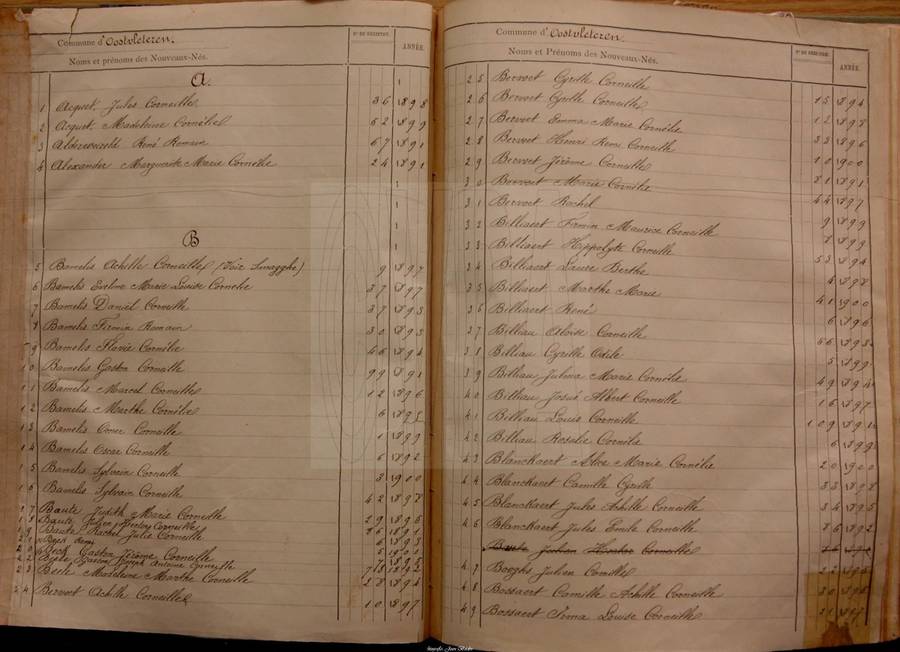 Commune d'Oostvleteren.
Noms et prénoms des Nouveaux-Nés.
N° DU REGISTRE.
ANNÉE.
A.
1 Acquet, Jules Corneille 36 1898
2 Acquet, Madeleine Cornélie 62 1899
3 René Romain 67 1891
4 Alexander Marguerite Marie Cornélie 24 1891
B
5 Bamelis Achille Corneille (Voir) 9 1897
6 Bamelis Eveline Marie Louise Cornélie 37 1897
7 Bamelis Daniël Corneille 37 1893
8 Bamelis Firmin Romain 30 1893
9 Bamelis Flavie Cornélie 46 1894
10 Bamelis Gaston Corneille 99 1891
11 Bamelis Marcel Corneille 12 1896
12 Bamelis Marthe Cornélie 6 1895
13 Bamelis Omer Corneille 1 1899
14 Bamelis Oscar Corneille 6 1892
15 Bamelis Sylvain Corneille 3 1900
16 Bamelis Sylvain Corneille 42 1898
17 Baute Judith Marie Corneille 29 1896
18 Baute Julien Hector Corneille
19 Baute Rachel Julie Corneille
20 Beck Remi
21 Beck Gaston Jérôme Corneille
22 Gaston Joseph Antoine Corneille
23 Madeleine Marthe Corneille 28 1894
24 Bervoet Achille Corneille 10 1897
Commune d'Oostvleteren.
Noms et Prénoms des Nouveaux-Nés.
N° DU REGISTRE.
ANNÉE.
25 Bervoet Cyrille Corneille 15 1894
26 Bervoet Cyrille Corneille 12 1898
27 Bervoet Emma Marie Cornélie 33 1896
28 Bervoet Henri Remi Corneille 10 1900
29 Bervoet Jérôme Corneille 81 1891
30 Bervoet Marie Cornélie 44 1897
31 Bervoet Rachel 9 1899
32 Billiaert Firmin Maurice Corneille 7 1899
33 Billiaert Hippolyte Corneille 53 1894
34 Billiaert Laure Berthe 4 1898
35 Billiaert Marthe Marie 41 1900
36 Billiaert René 6 1896
37 Billiau Aloïse Corneille 66 1893
38 Billiau Cyrille Odile 5 1899
39 Billiau Julma Marie Cornélie 49 1894
40 Billiau Josué Albert Corneille 16 1897
41 Billiau Louis Corneille 109 1891
42 Billiau Rosalie Cornélie 6 1899
43 Blanckaert Alice Marie Cornélie 20 1900
44 Blanckaert Camille Cyrille 33 1898
45 Blanckaert Jules Achille Corneille 34 1895
46 Blanckaert Jules Emile Corneille 76 1892
Baute Julien Hector Corneille
47 Booghs Julien Corneille 22 1896
48 Bossaert Camille Achille Corneille 30 1895
49 Bossaert Irma Louise Corneille 21